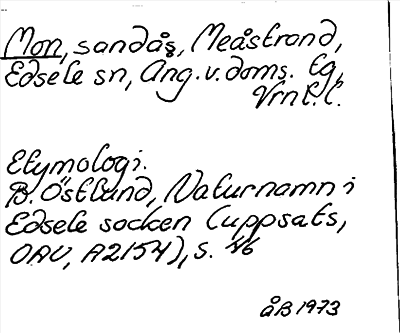 Mon, sandås, Meåstrand,
Edsele sn, Ång. v. doms. tg,
Vrnl. l.
Etymologi.
B. Östlund, Naturnamn i
Edsele socken (uppsats,
OAU, A2154), s. 46
åB 1973